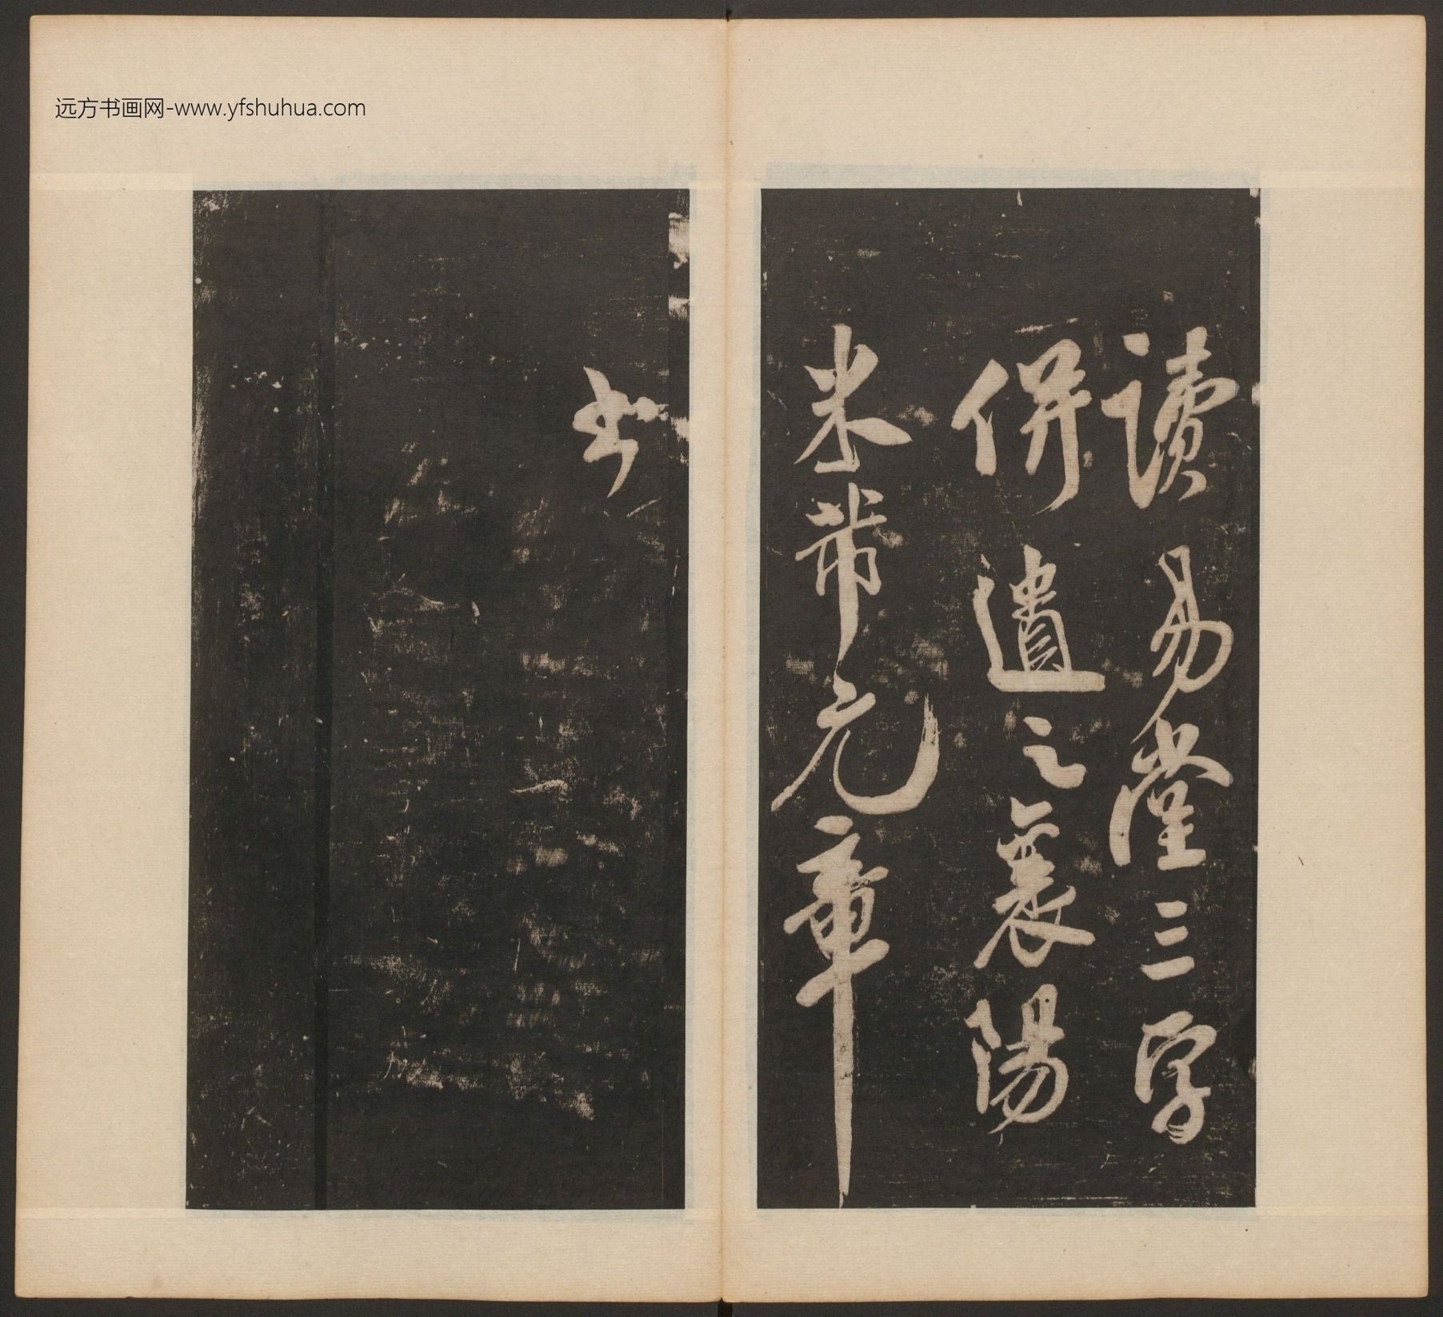 远方书画网-www.yfshuhua.com
讀易堂三字
併遺之襄陽
米芾元章
書